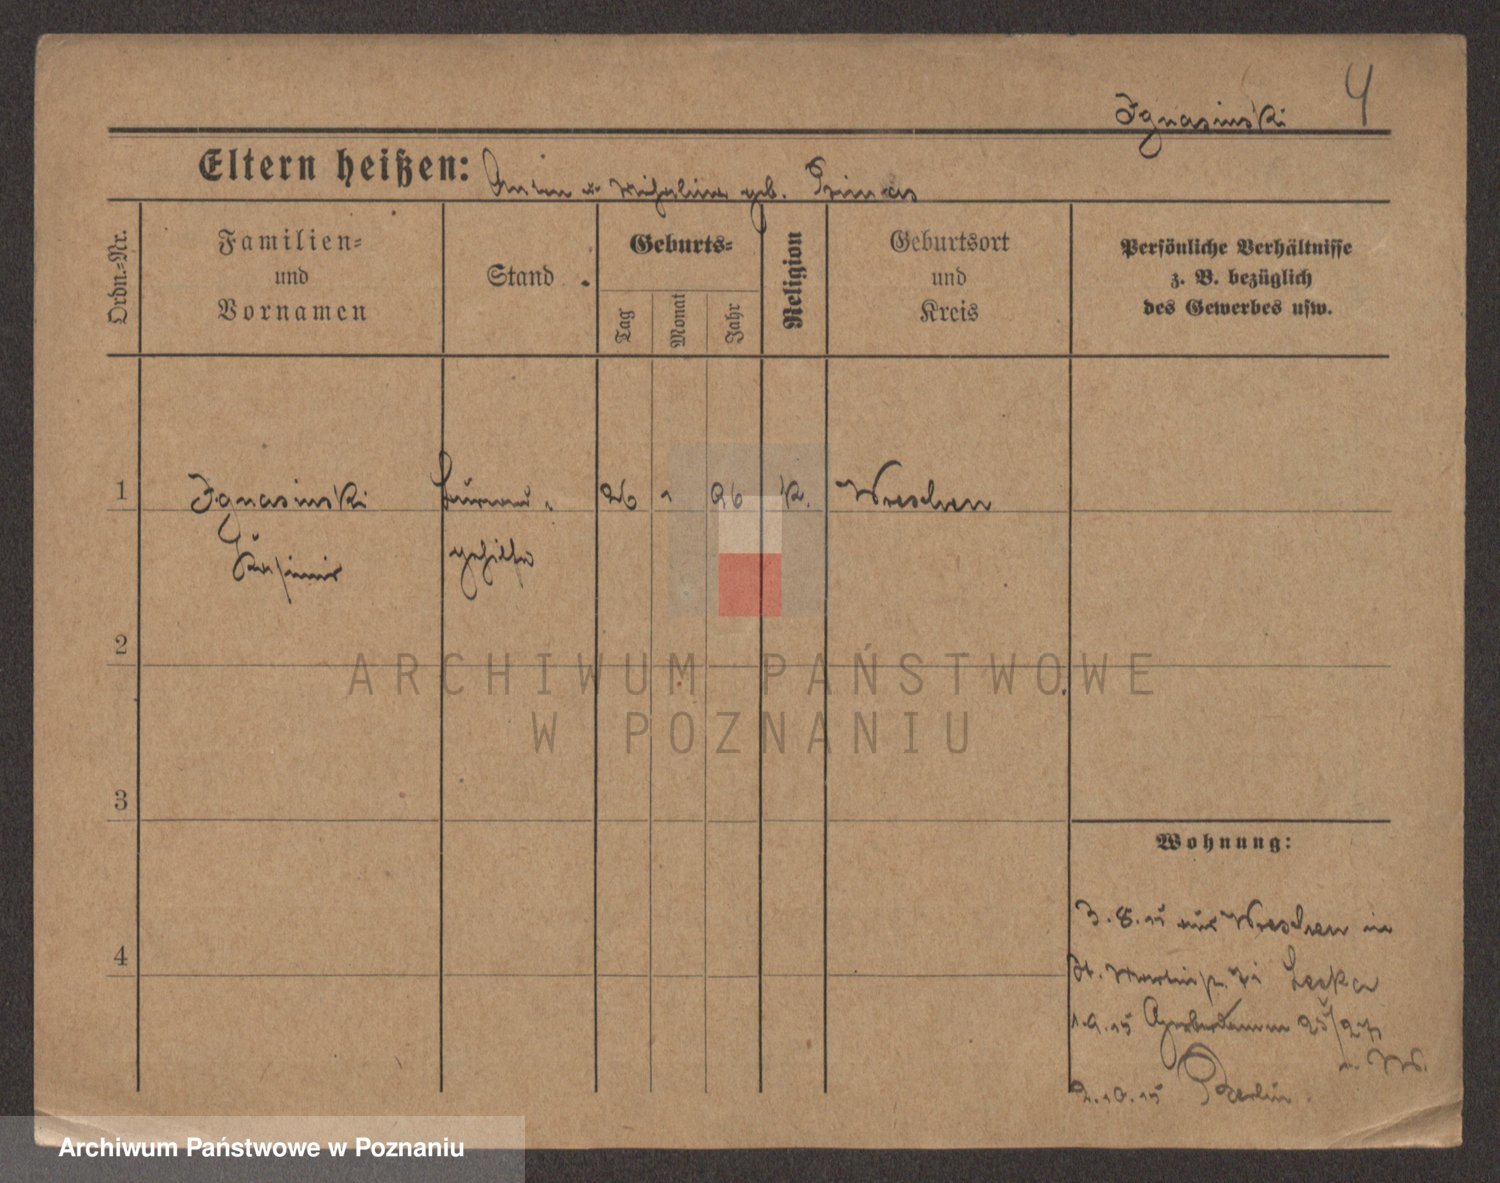 4
Ignasinski
Eltern heißen: geb.
Ordn.=Nr.
Familien=
und
Vornamen
Stand
Geburts=
Tag
Monat
Jahr
Religion
Geburtsort
und
Kreis
Persönliche Verhältnisse
z. B. bezüglich
des Gewerbes usw.
1 Ignasinski Bureau 26 1 96 k. Wreschen
Kasimir gehilfe
2
ARCHIWUM PAŃSTWOWE
W POZNANIU
3
Wohnung:
3.8.15 aus Wreschen in
4
St. Martinstr.
1.9.15 Gerberdamm 25/27
2.10.15 Berlin
Archiwum Państwowe w Poznaniu